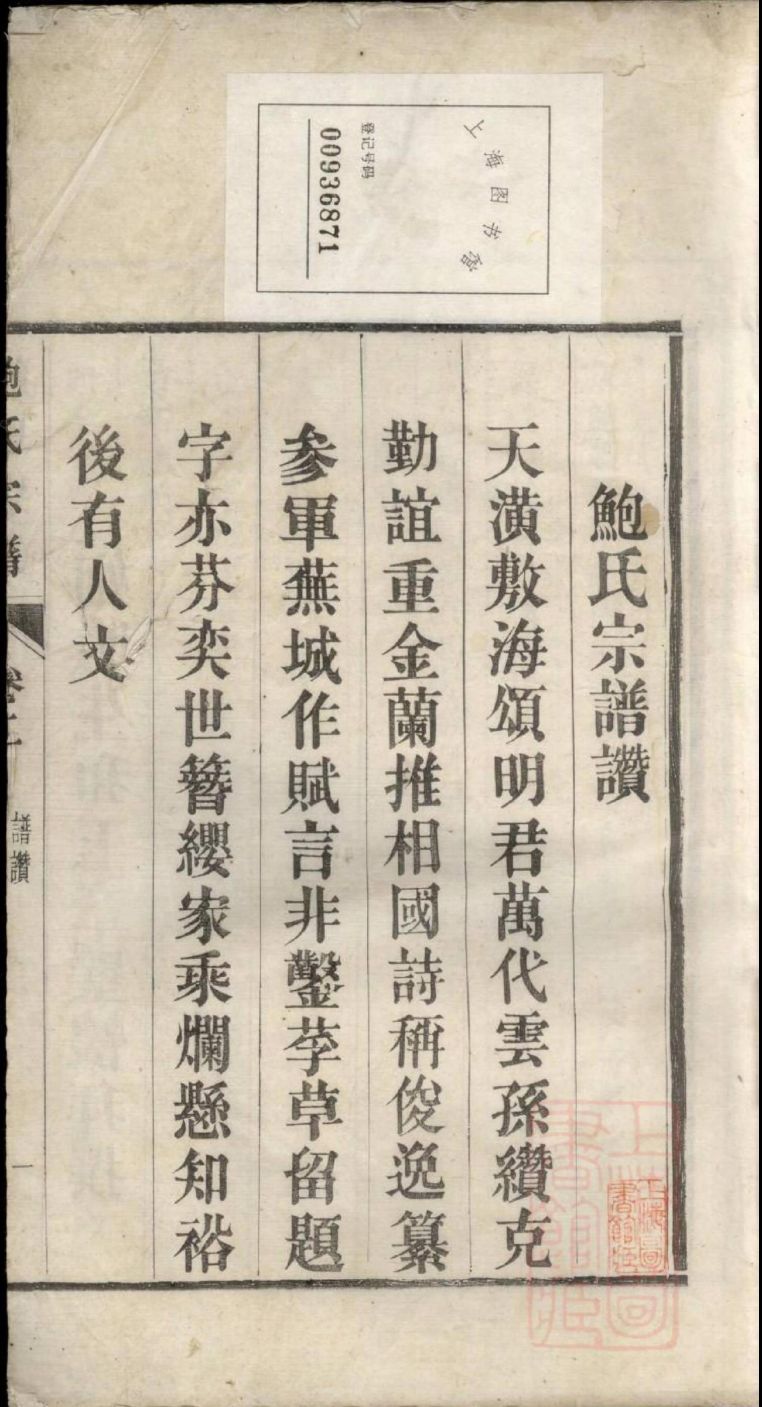 上海图书馆
登记号码
00936871
鮑氏宗譜讚
天潢敷海頌明君萬代雲孫纘克
勤誼重金蘭推相國詩稱俊逸纂
參軍蕪城作賦言非鑿荸草留題
字亦芬奕世簪纓家乘爛懸知裕
後有人文
鮑氏宗譜
卷二
譜讚
一
上海圖書館藏
上海圖書館藏